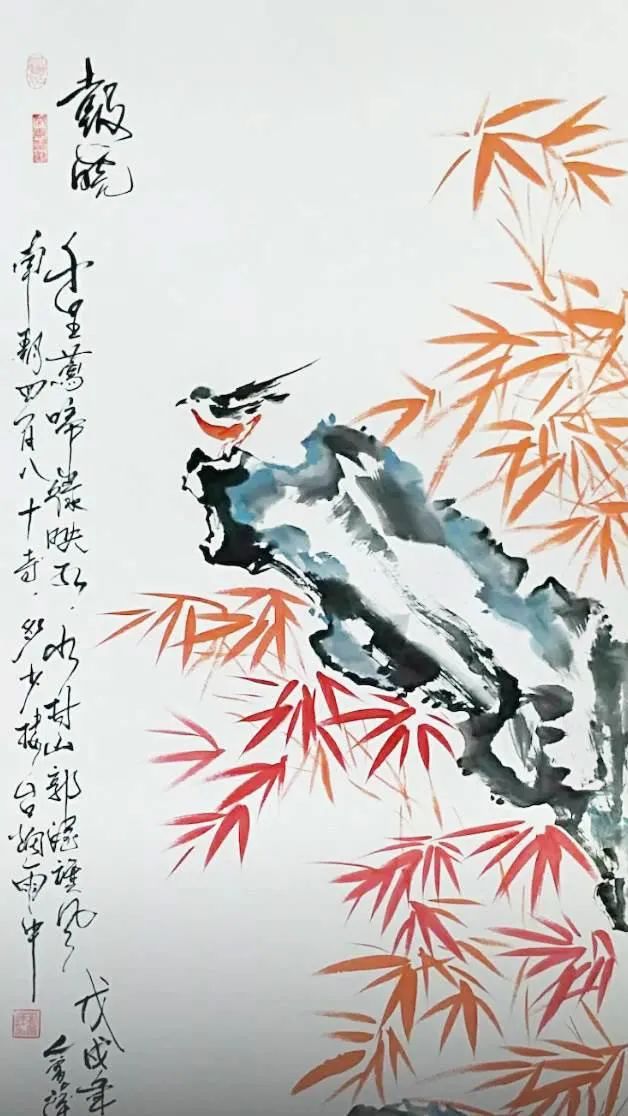 報晓
千里莺啼绿映红.水村山郭酒旗风
南朝四百八十寺.多少楼台烟雨中
戊戌年